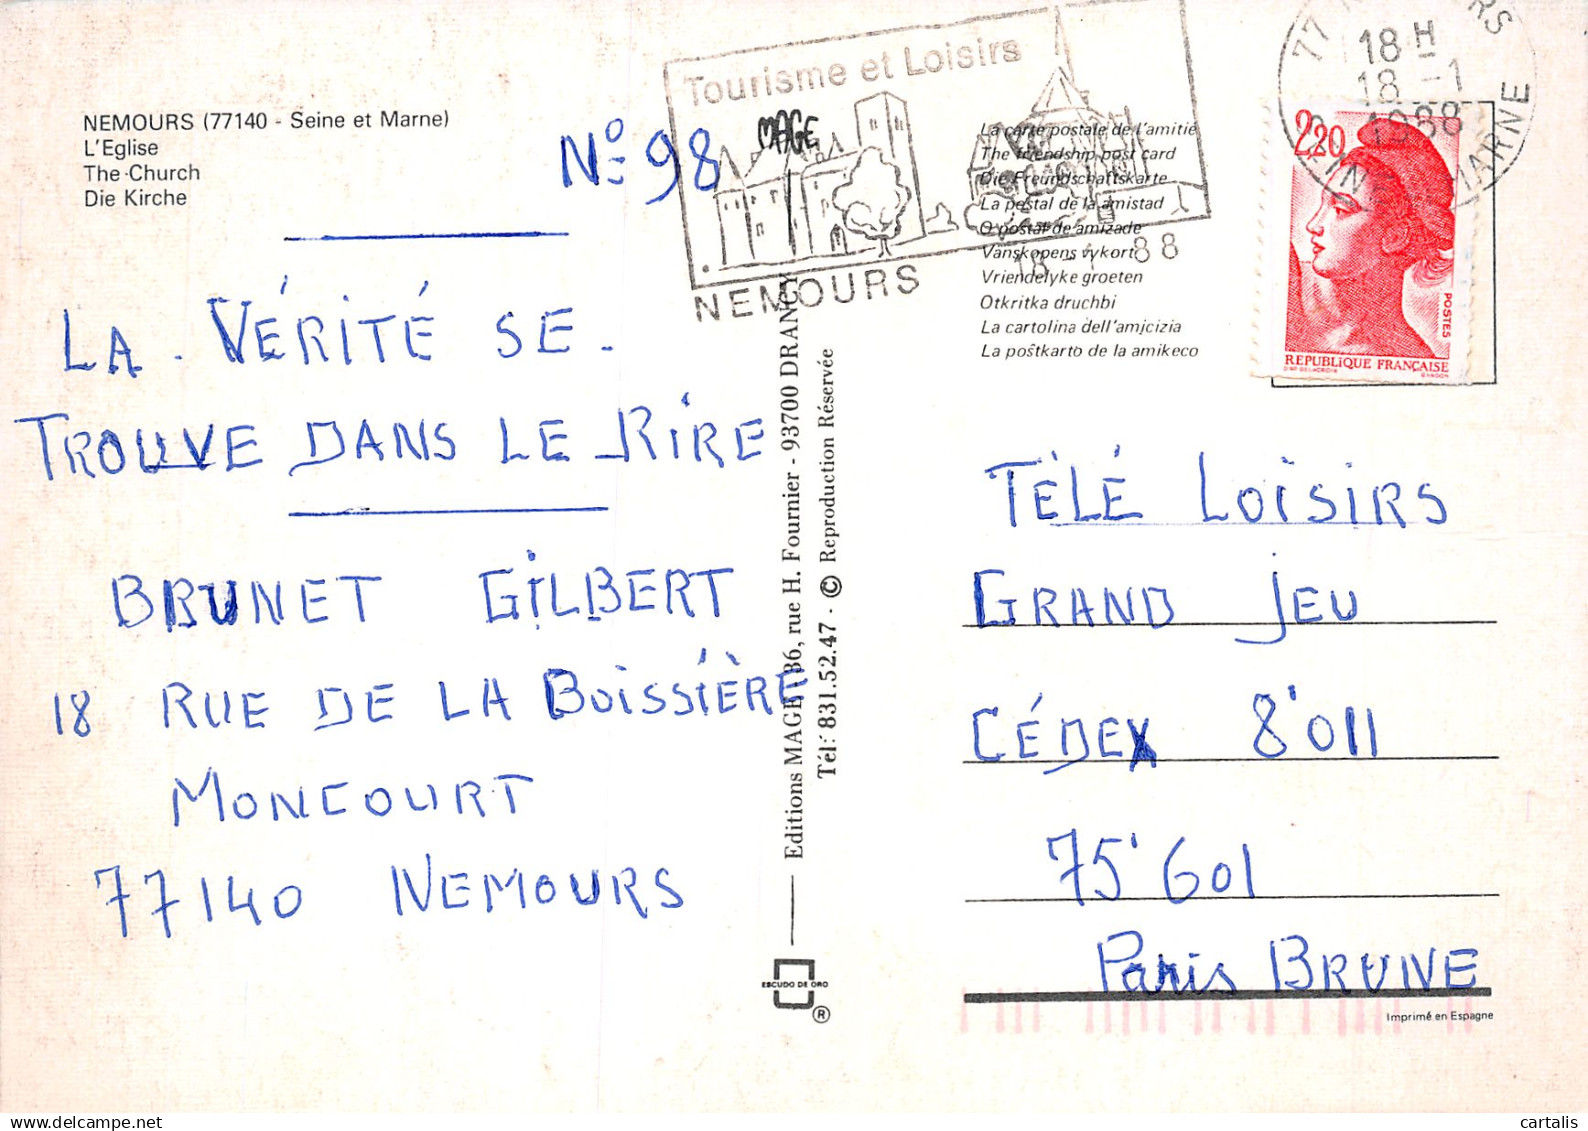 NEMOURS (77140 - Seine et Marne)
L'Eglise
The Church
Die Kirche
Nº 98
MAGE
LA . VÉRITÉ SE .
TROUVE DANS LE RIRE
BRUNET GILBERT
18 RUE DE LA BOISSIÈRE
MONCOURT
77140 NEMOURS
Tourisme et Loisirs
NEMOURS
18 -1 88
18 H
18 -1
1988
La carte postale de l'amitie
The friendship post card
Die Freundschaftskarte
La postal de la amistad
O postal de amizade
Vänskopens vykort
Vriendelyke groeten
Otkritka druchbi
La cartolina dell'amicizia
La poŝtkarto de la amikeco
2,20
POSTES
REPUBLIQUE FRANÇAISE
Editions MAGE, 36, rue H. Fournier - 93700 DRANCY
Tél: 831.52.47 - © Reproduction Réservée
ESCUDO DE ORO
®
TÈLÉ LOISIRS
GRAND JEU
CÉDEX 8'011
75'601
Paris BRUNE
Imprimé en Espagne
cartalis